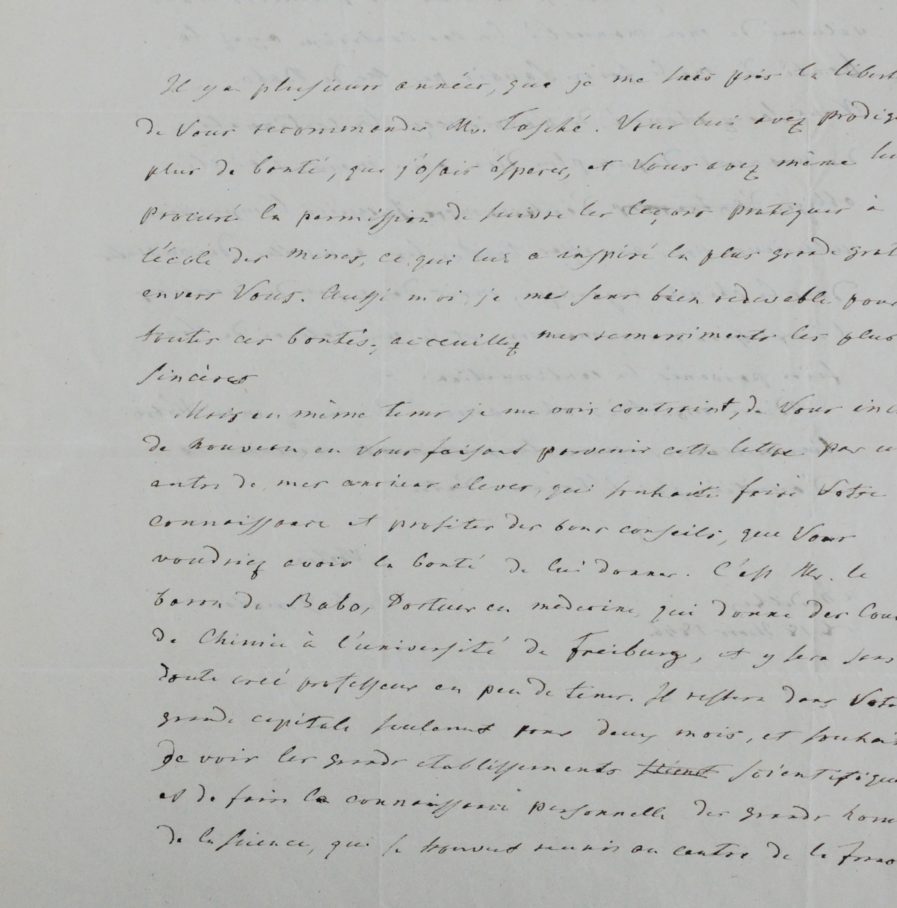 Il y a plusieurs années, que je me suis pris la libert
de Vous recommender Mr. Tasché. Vous lui avez prodig
plus de bonté, que j'osais éspérer, et Vous avez même lu
procuré la permission de suivre les leçons pratiques à
l'école des mines, ce qui lui a inspiré la plus grande grat
envers Vous. Aussi moi je me sens bien redevable pour
toutes ces bontés; acceuillez mes remerciments les plus
sincères
Mais en même tems je me vois contraint, de Vous in
de nouveau en Vous faisant parvenir cette lettre par u
autre de mes anciens eleves, qui souhaite faire Votre
connaissance et profiter des bons conseils, que Vous
voudriez avoir la bonté de lui donner. C'est Mr. le
baron de Babo, Docteur en medecine, qui donne des Cou
de Chimie à l'université de Freiburg, et y sera sans
doute creé professeur en peu de tems. Il restera dans Vot
grande capitale seulement pour deux mois, et souhai
de voir les grands etablissements scientifique
et de faire la connaissance personnelle des grands hom
de la science, qui se trouvent reunis au centre de la fran